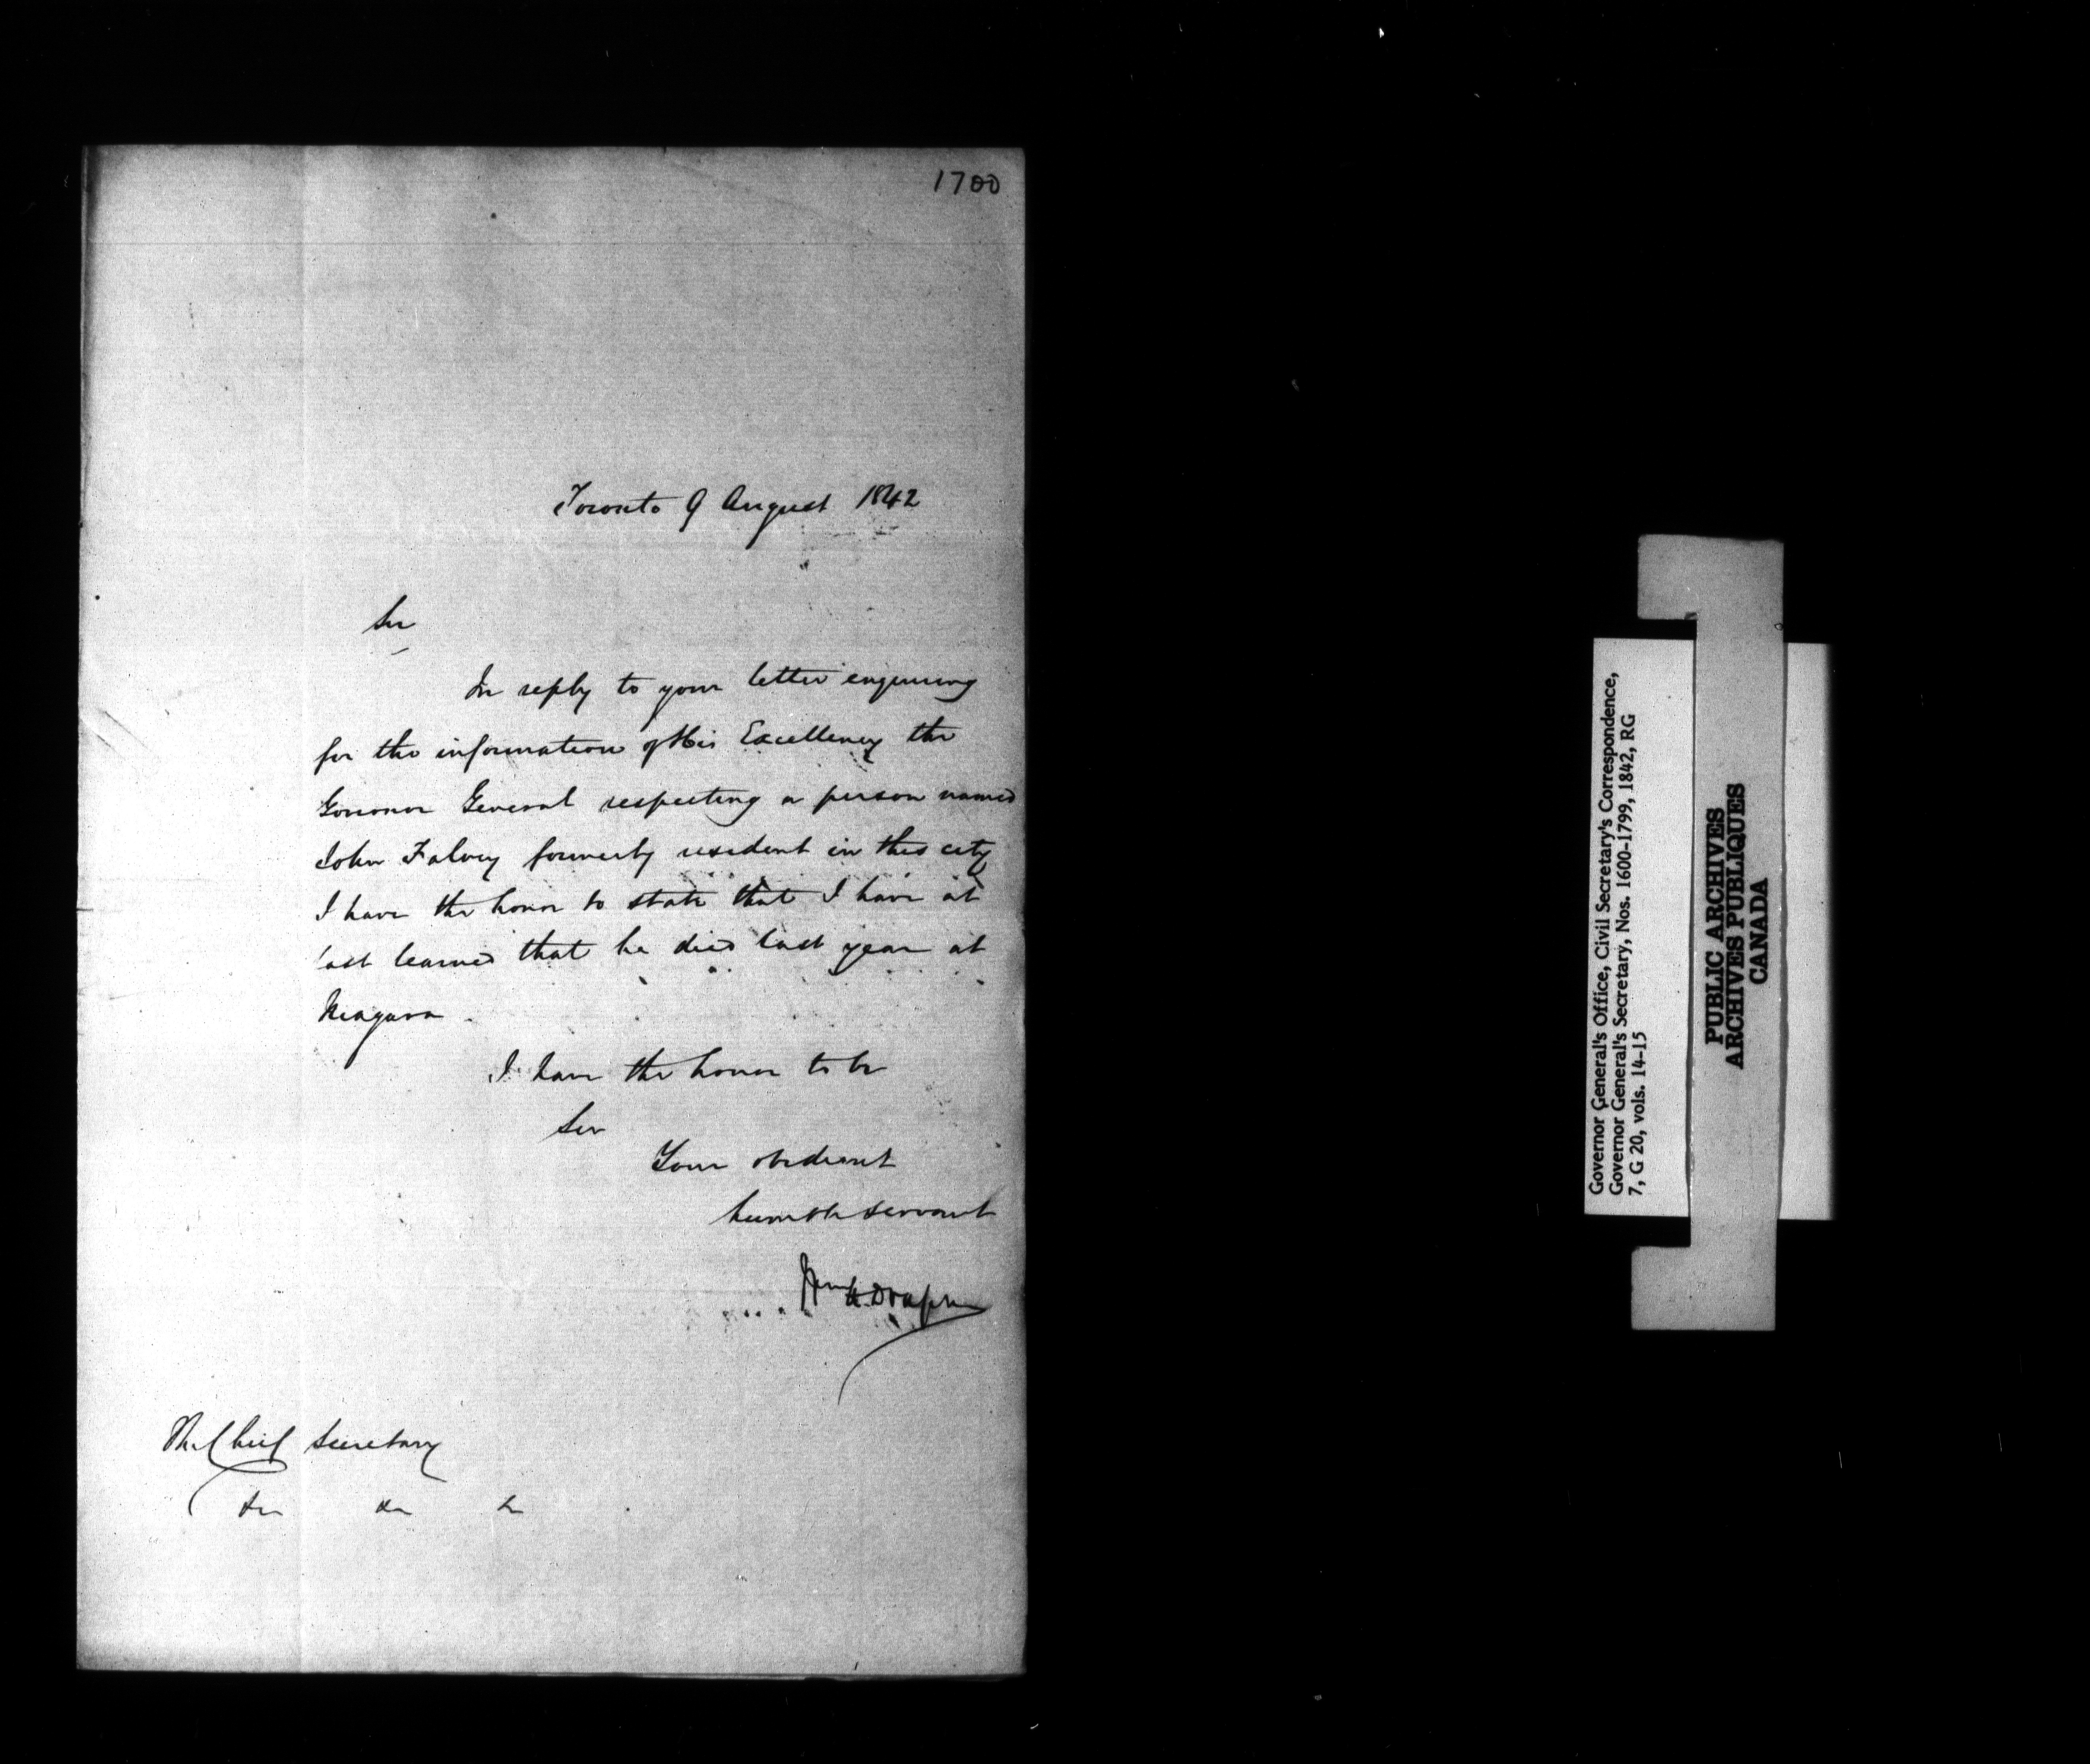 1700
Toronto 9 August 1842
Sir
In reply to your letter enquiring
for the information of His Excellency the
Governor General respecting a person named
John Falvey formerly resident in this city
I have the honor to state that I have at
last learned that he died last year at
Niagara
I have the honor to be
Sir
Your obedient
humble servant
Wm H Draper
The Chief Secretary
&c &c &c
Governor General's Office, Civil Secretary's Correspondence,
Governor General's Secretary, Nos. 1600-1799, 1842, RG
7, G 20, vols. 14-15
PUBLIC ARCHIVES
ARCHIVES PUBLIQUES
CANADA